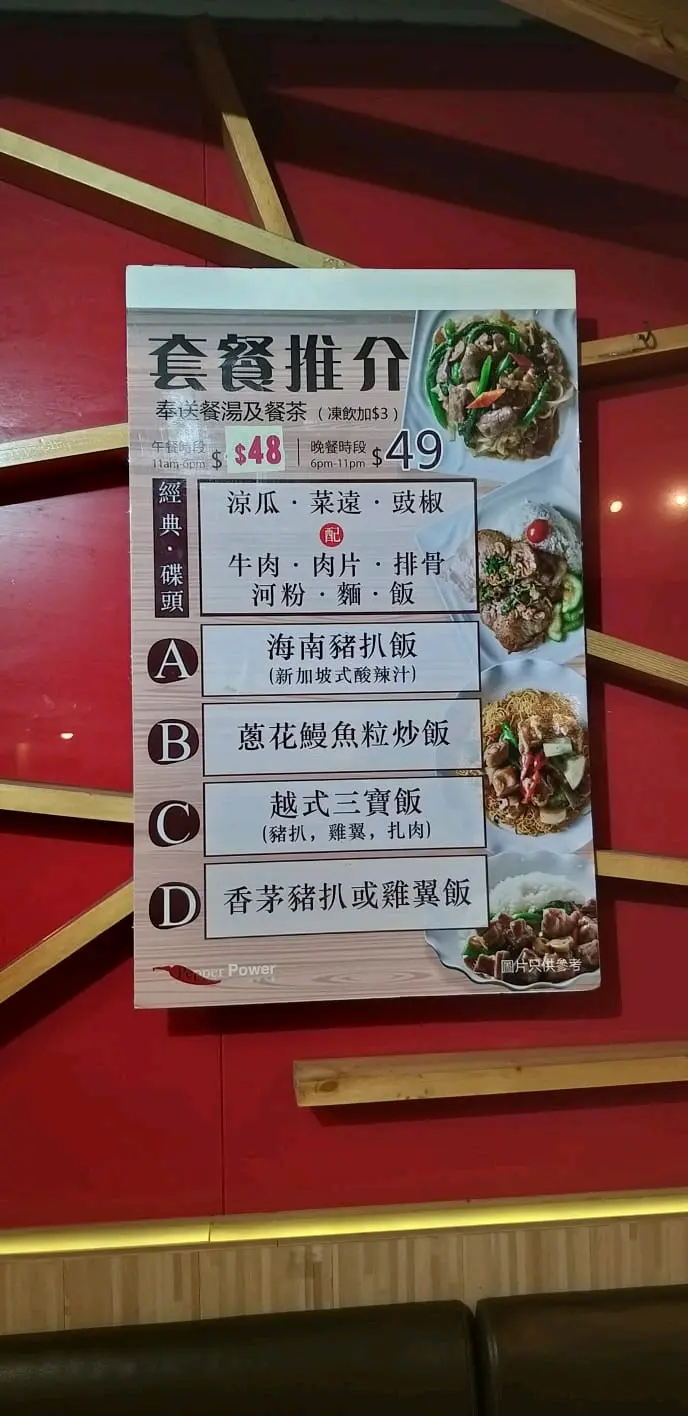 套餐推介
奉送餐湯及餐茶（凍飲加$3）
午餐時段
11am-6pm
$
$48
晚餐時段
6pm-11pm
$49
經典·碟頭
涼瓜·菜遠·豉椒
配
牛肉·肉片·排骨
河粉·麵·飯
A
海南豬扒飯
(新加坡式酸辣汁)
B
蔥花鰻魚粒炒飯
C
越式三寶飯
(豬扒，雞翼，扎肉)
D
香茅豬扒或雞翼飯
Pepper Power
圖片只供參考